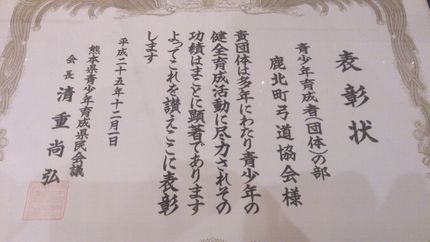 表彰状
青少年育成者(団体)の部
鹿北町弓道協会様
貴団体は多年にわたり青少年の
健全育成活動に尽力されその
功績はまことに顕著であります
よってこれを讃えここに表彰
します
平成二十五年十二月一日
熊本県青少年育成県民会議
会長 清重尚弘